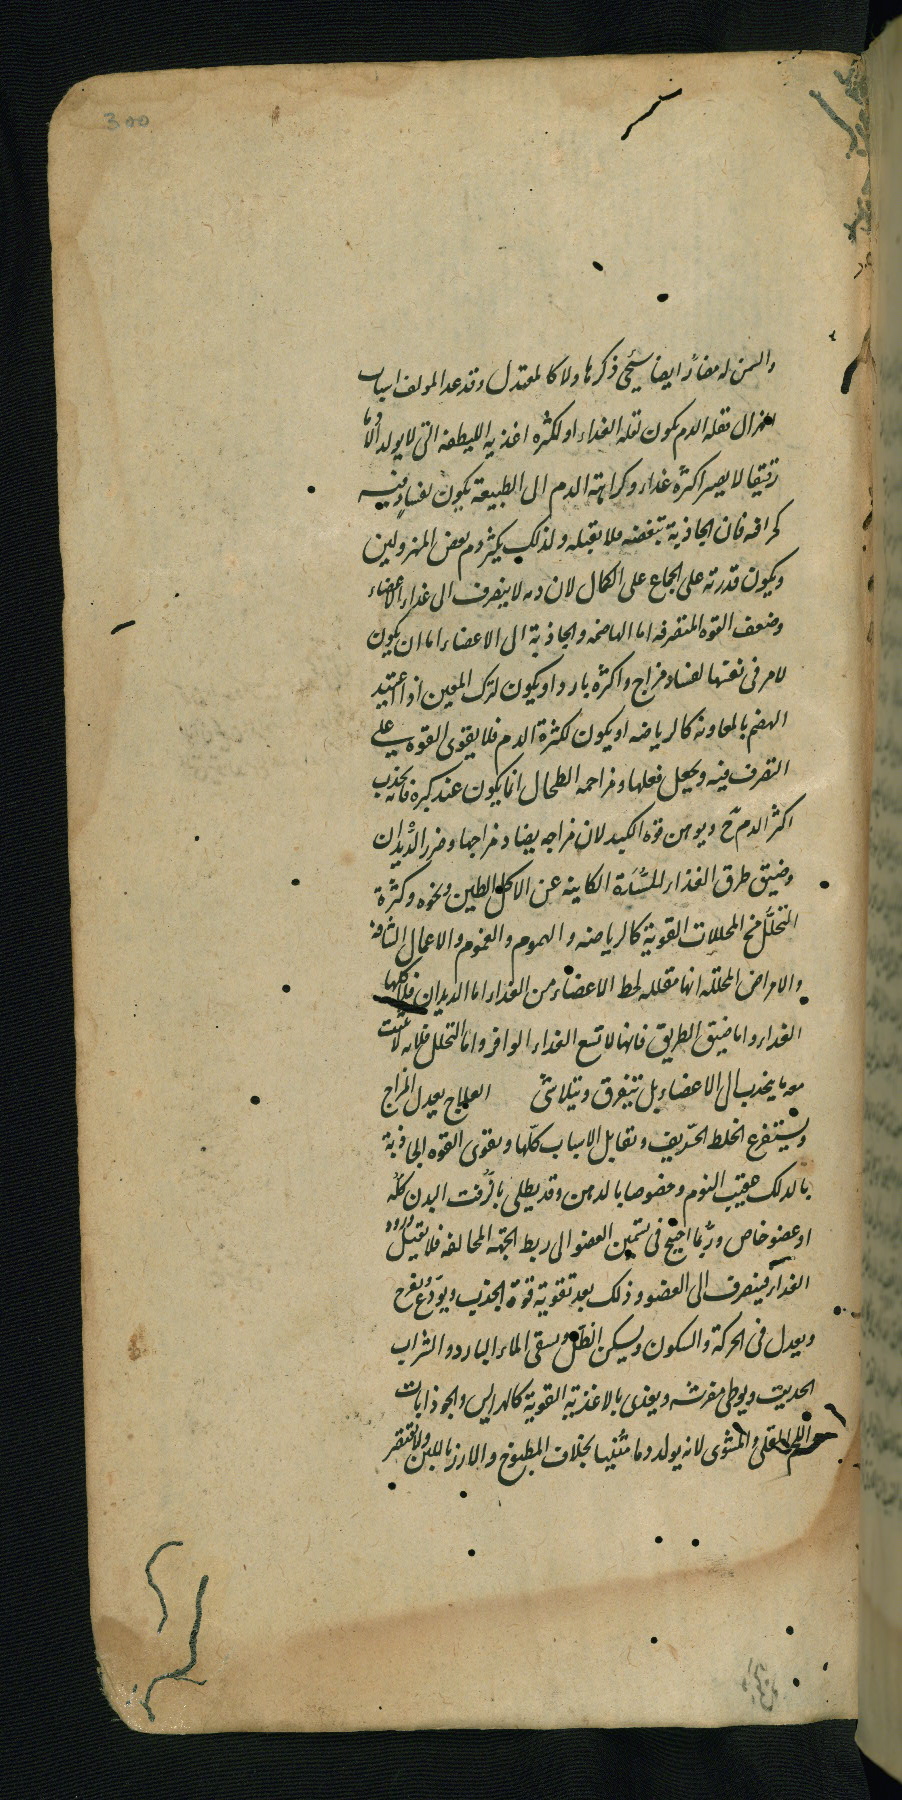 300
والسمن له مضار ايضا سيجئ ذكرها ولا كالمعتدل وقد عد المولف اسباب
الهزال فقلة الدم يكون لقلة الغذاء او لكثرة اغذيه اللطيفه التى لا يولد الا دما
رقيقا لا يصير اكثره غذاء وكراهة الدم الى الطبيعة يكون لفساد فيه
كحرافه فان الجاذبة تبغضه فلا تقبله ولذلك يكثر دم بعض المهزولين
ويكون قدرته على الجماع على الكمال لان دمه لا ينصرف الى غذاء الاعضاء
وضعف القوه المتصرفه اما الهاضمه والجاذبة الى الاعضاء اما ان يكون
لامر فى نفسها لفساد مزاج واكثره بارد او يكون لترك المعين اذا اعتيد
الهضم بالمعاونه كالرياضه او يكون لكثرة الدم فلا يقوى القوه على
التصرف فيه وفعل فعلها ومزاحمه الطحال انما يكون عند كبره فانه يجذب
اكثر الدم ح ويوهن قوه الكبد لان مزاجه يضاد مزاجها وضرر الديدان
وضيق طرق الغذاء للسدة الكاينه عن الاكل الطين ونحوه وكثرة
التحلل من المحللات القوية كالرياضه والهموم والغموم والاعمال الشاقه
والامراض المحلله انها مقلله لحظ الاعضاء من الغذاء اما الديدان فلاكلها
الغذاء واما ضيق الطريق فانها لا تسع الغذاء الوافر واما التحلل فلانه لا يثبت
معه ما ينجذب الى الاعضاء بل يتفرق ويتلاشى العلاج يعدل المزاج
ويستفرغ الخلط الحريف وتقابل الاسباب كلها ويقوى القوه الجاذبة
بالدلك عقيب النوم وخصوصا بالدهن وقد يطلى بالزفت البدن كله
او عضو خاص وربما احتيج فى تسمين العضو الى ربط الجهه المخالفه فلا يقبل ورود
الغذاء فينصرف الى العضو وذلك بعد تقوية قوة الجذب ويودع ويفرح
ويعدل فى الحركة والسكون ويسكن الظل ويسقى الماء البارد والشراب
الحديث ويوطى مفرشه ويغذى بالاغذية القوية كالهرايس والجوذابات
واللحم المقلى والمشوى لانه يولد دما متينا بخلاف المطبوخ والارز باللبن